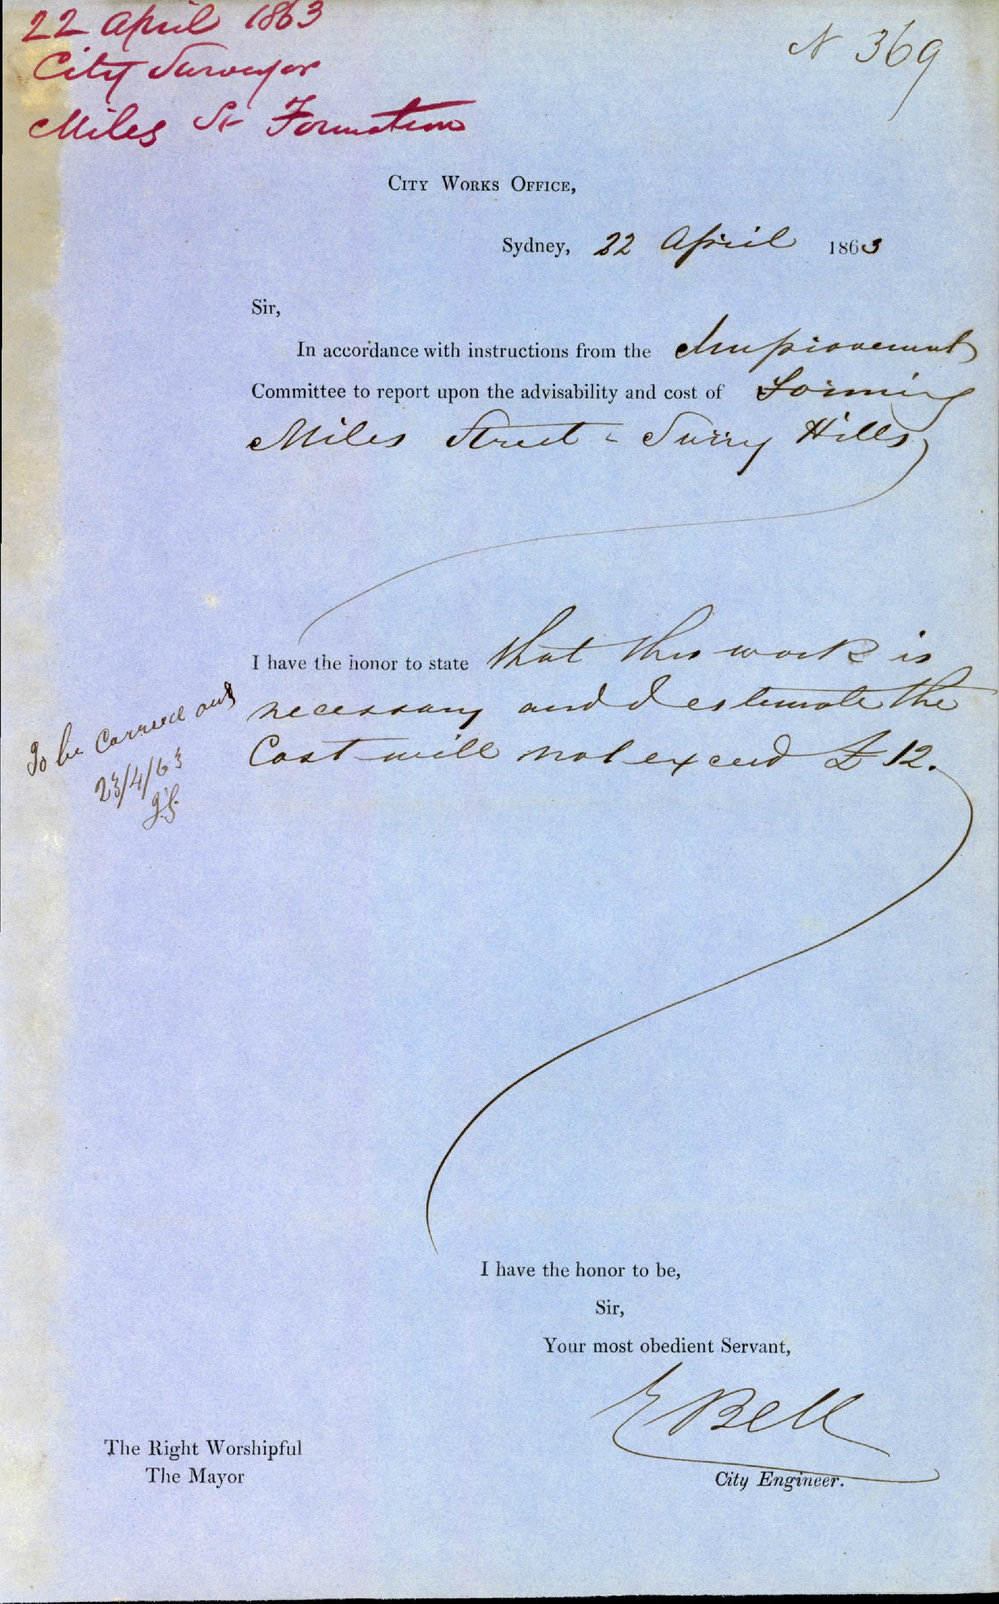 22 April 1863
City Surveyor
Miles St Formation
N 369
City Works Office,
Sydney, 22 April 1863
Sir,
In accordance with instructions from the Improvement
Committee to report upon the advisability and cost of Forming
Miles Street - Surry Hills
I have the honor to state that this work is
necessary and I estimate the
Cost will not exceed £12.
To be carried out
23/4/63
I have the honor to be,
Sir,
Your most obedient Servant,
E Bell
City Engineer.
The Right Worshipful
The Mayor